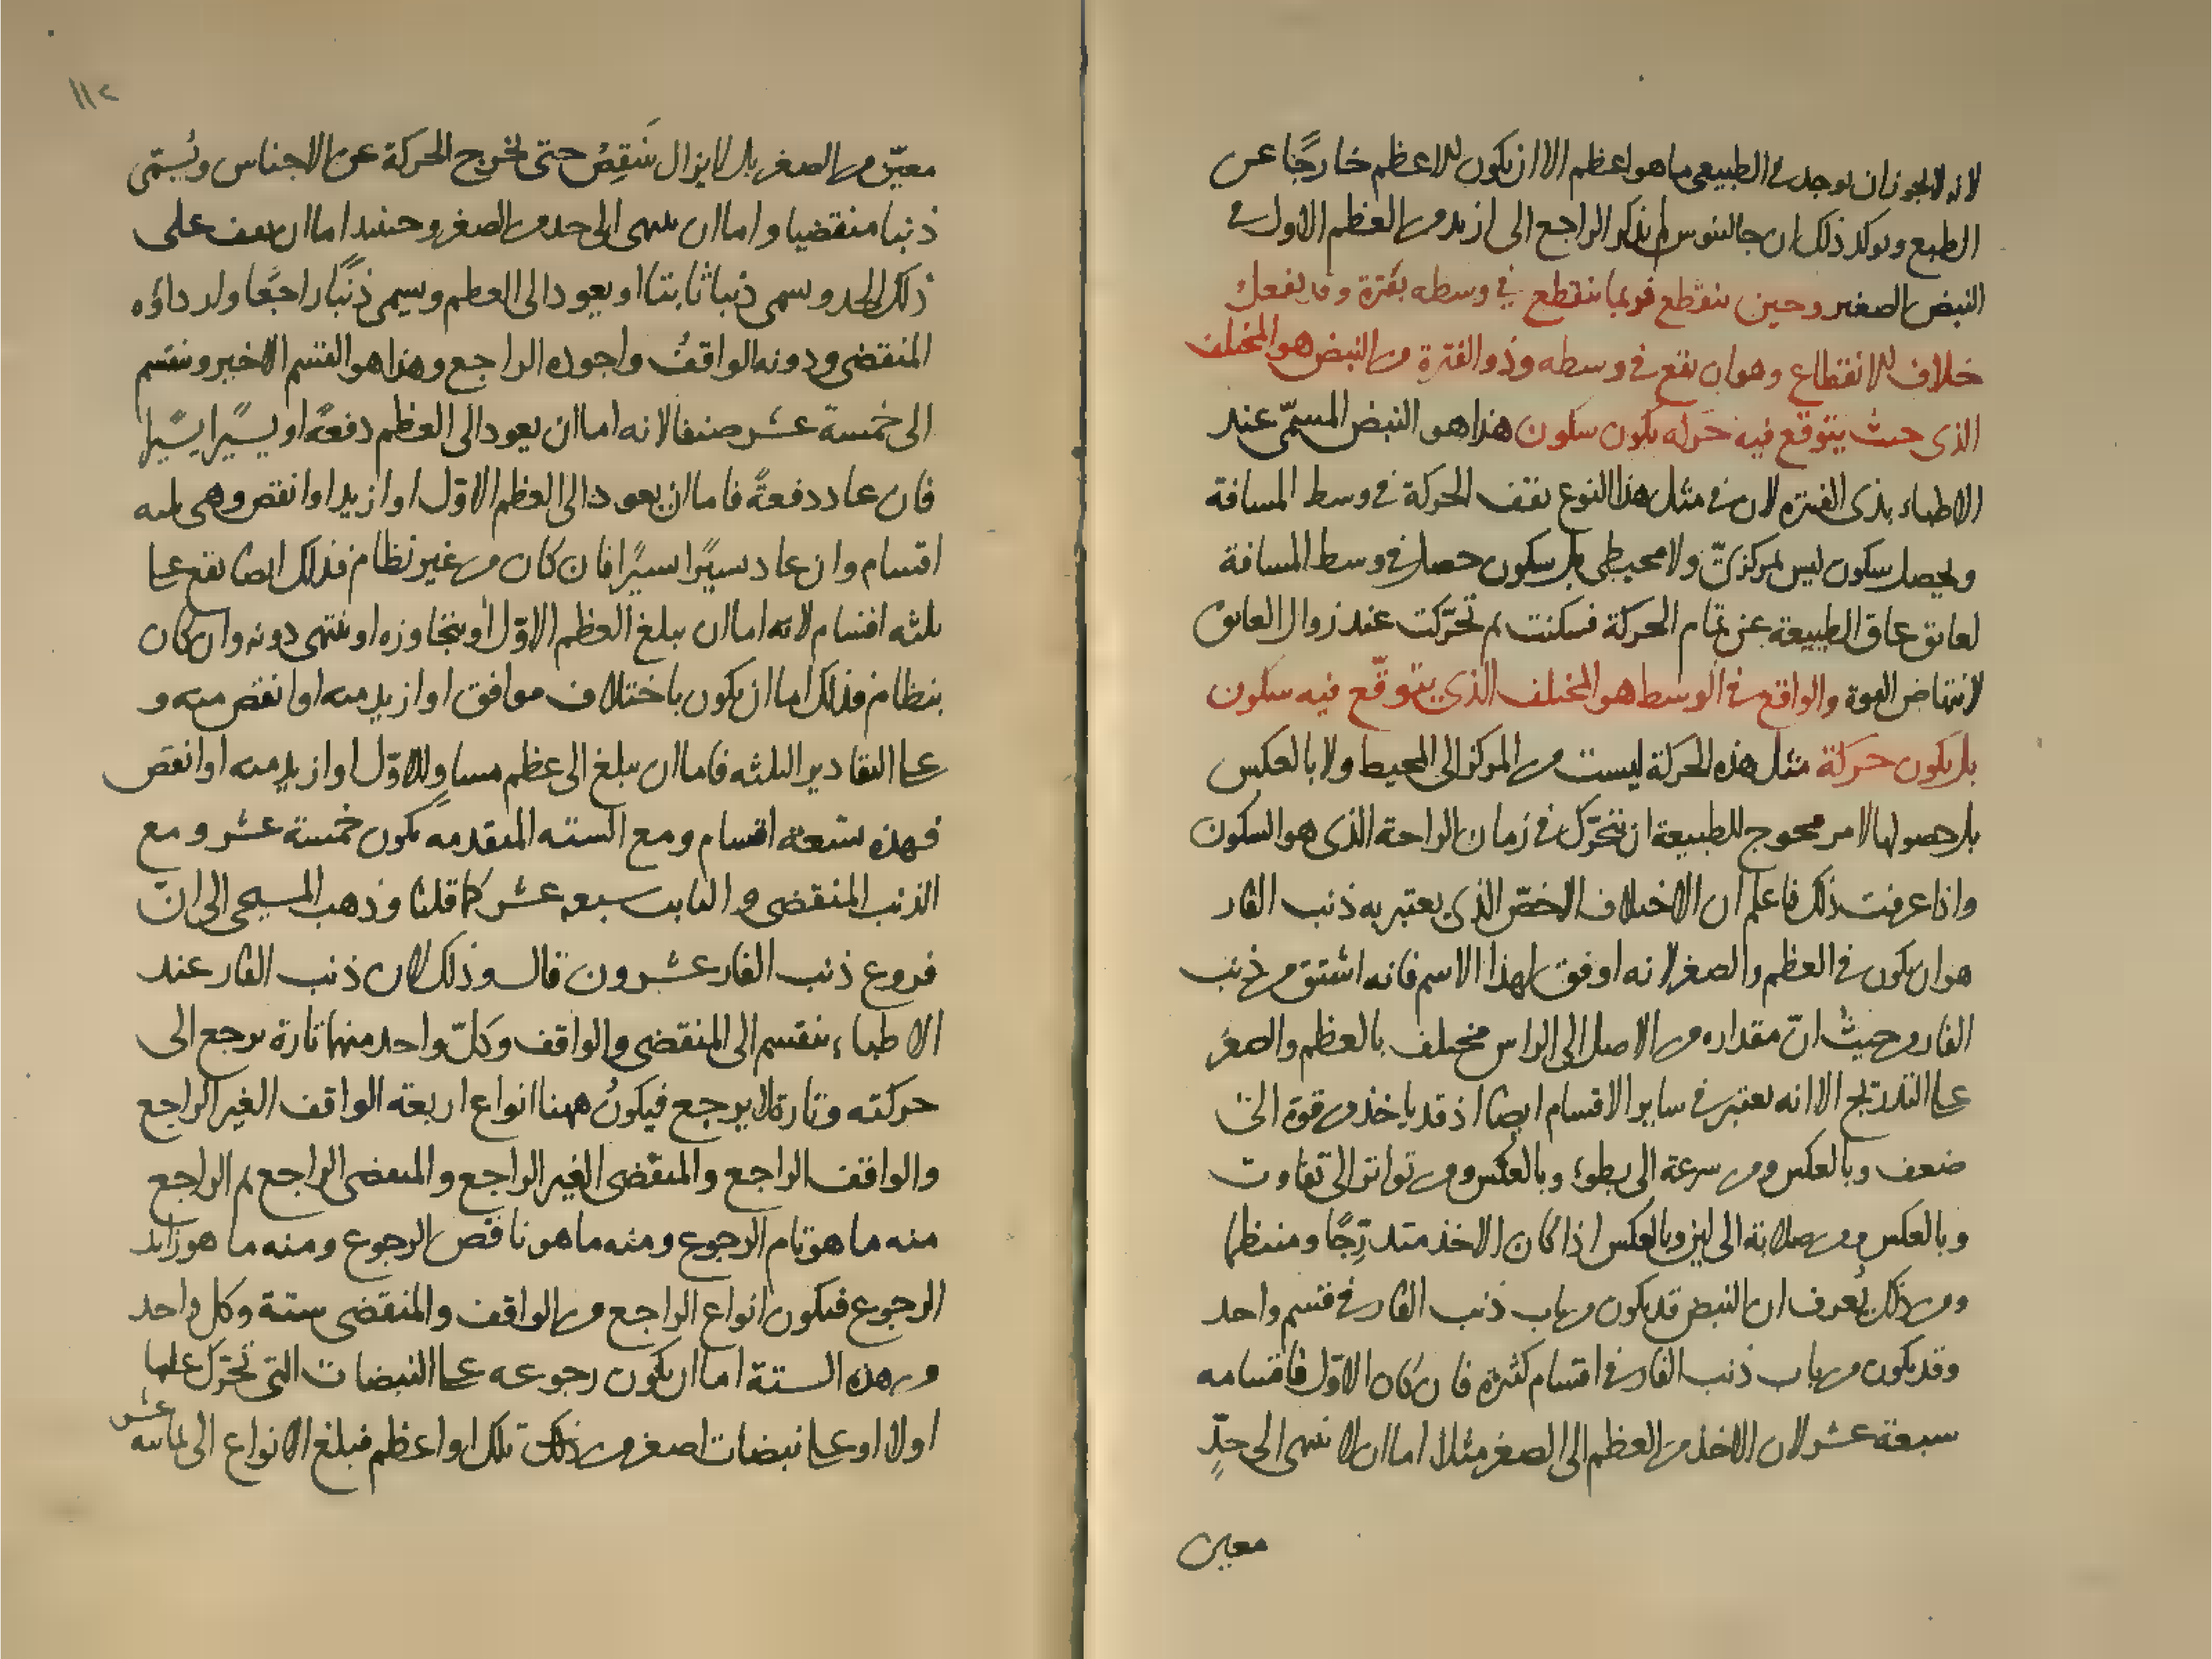 لانه لا يجوز ان يوجد في الطبيعي ما هو اعظم الا ان يكون للاعظم خارجًا عن
الطبع ويوكد ذلك ان جالينوس لم يذكر الراجع الى ازيد من العظم الاول في
النبض الصغير وحين ينقطع فربما ينقطع في وسطه بفترة وقد يفعل
خلاف للانقطاع وهو ان يقع في وسطه وذو الفترة من النبض هو المختلف
الذى حيث يتوقع فيه حركه يكون سكون هذا هو النبض المسمّى عند
الاطباء بذى الفتره لان في مثل هذا النوع تقف الحركة في وسط المسافة
ويحصل سكون ليس لمركزىّ ولا محيطى بل سكون حصل في وسط المسافة
لعايق عاق الطبيعة عن تمام الحركة فسكنت ثم تحرّكت عند زوال العايق
لانتهاض القوة والواقع في الوسط هو المختلف الذي يتوقّع فيه سكون
بل يكون حركة مثل هذه الحركة ليست من المركز الى المحيط ولا بالعكس
بل حصولها لامر محوج للطبيعة ان تتحرّك في زمان الراحة الذى هو السكون
واذا عرفت ذلك فاعلم ان الاختلاف الاخصّ الذي يعتبر به ذنب الفار
هو ان يكون في العظم والصغر لانه اوفق لهذا الاسم فانه اشتق من ذنب
الفار وحيث انّ مقداره من الاصل الى الراس مختلف بالعظم والصغر
على التدريج الا انه يعتبر في ساير الاقسام ايضًا اذ قد ياخذ من قوة الى
ضعف وبالعكس ومن سرعة الى بطوء وبالعكس ومن تواتر الى تفاوت
وبالعكس ومن صلابة الى لين وبالعكس اذا كان الاخذ متدرّجًا ومنتظما
ومن ذلك يُعرف ان النبض قد يكون من باب ذنب الفار في قسم واحد
وقد يكون من باب ذنب الفار في اقسام كثيرة فان كان الاوّل فاقسامه
سبعة عشر لان الاخذ من العظم الى الصغر مثلا اما ان لا ينتهى الى حدٍّ
معين
١١٢
معيّن من الصغر بل لا يزال يَنقِصُ حتى تخرج الحركة عن الاجناس ويُسمّى
ذنبا منقضيا واما ان ينتهى الى حد من الصغر وحينيد اما ان يقف على
ذلك الحد ويسمى ذنبا ثابتا او يعود الى العظم ويسمى ذَنَبًا راجعًا واردؤه
المنقضى ودونه الواقفُ واجوده الراجع وهذا هو القسم الاخير وينقسم
الى خمسة عشر صنفا لانه اما ان يعود الى العظم دفعةً او يسيرًا يسيرًا
فان عاد دفعةً فاما ان يعود الى العظم الاوّل او ازيد او انقص وهى ثلثه
اقسام وان عاد يسيرًا يسيرًا فان كان من غير نظام فذلك ايضا يقع على
ثلثه اقسام لانه اما ان يبلغ العظم الاوّل او يتجاوزه او ينتهى دونه وان كان
بنظام فذلك اما ان يكون باختلاف موافق او ازيد منه او انقص منه و
على التقادير الثلثه فاما ان يبلغ الى عظم مساو للاوّل او ازيد منه او انقص
فهذه تسعة اقسام ومع الستة المتقدمه يكون خمسة عشر ومع
الذنب المنقضى والثابت سبعه عشر كما قلنا وذهب المسيحى الى انّ
فروع ذنب الفار عشرون قال وذلك لان ذنب الفار عند
الاطباء ينقسم الى المنقضى والواقف وكلّ واحد منهما تارة يرجع الى
حركته وتارة لا يرجع فيكونُ ههنا انواع اربعة الواقف الغير الراجع
والواقف الراجع والمنقضى الغير الراجع والمنقضى الراجع ثم الراجع
منه ما هو تام الرجوع ومنه ما هو ناقص الرجوع ومنه ما هو زايد
الرجوع فيكون انواع الراجع من الواقف والمنقضى ستة وكل واحد
من هذه الستة اما ان يكون رجوعه على النبضات التى تحرّك عليها
اولا او على نبضات اصغر من تلك او اعظم فبلغ الانواع الى ثمانيه عشر